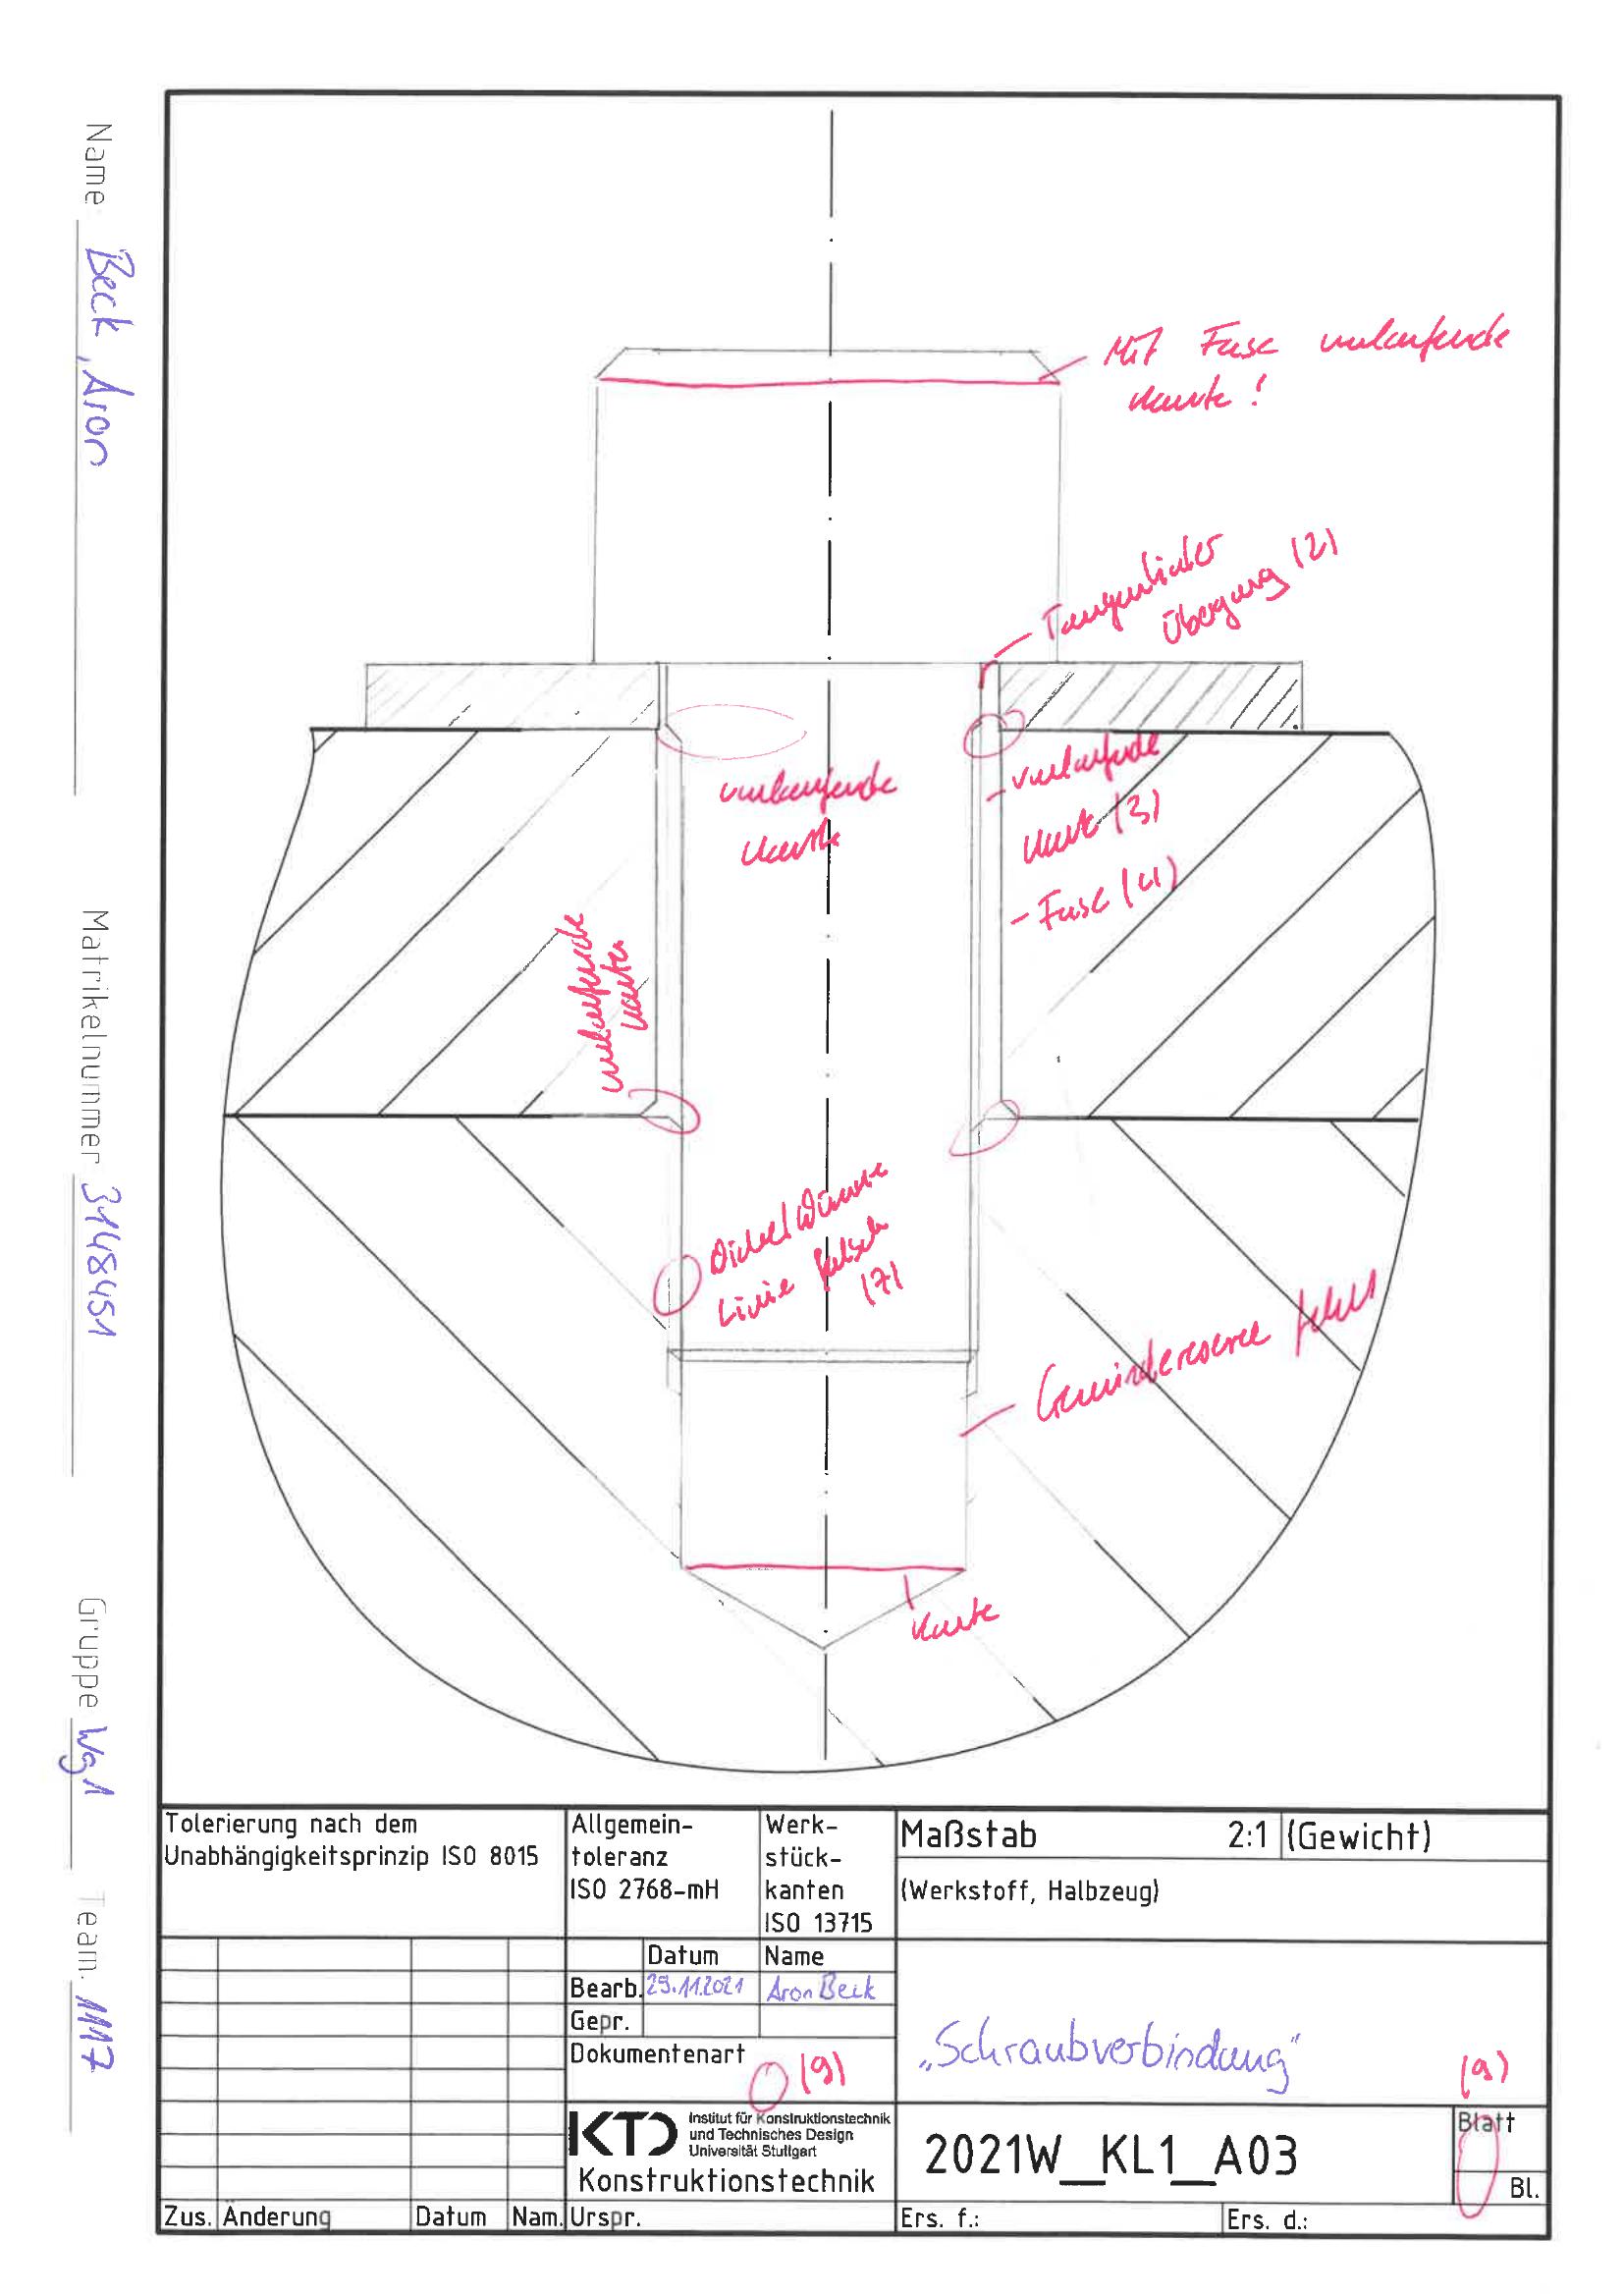 Name: Beck, Aron
Matrikelnummer 3448451
Gruppe Wg1
Team: 1117
Mit Fase umlaufende
Kante!
Tangentialer
Übergang (2)
umlaufende
Kante
- umlaufende
Kante (3)
- Fase (4)
umlaufende
Kanten
Dicke/Dünne
Linie falsch
(7)
Gewindereserve fehlt
Kante
Tolerierung nach dem
Unabhängigkeitsprinzip ISO 8015
Allgemein-
toleranz
ISO 2768-mH
Werk-
stück-
kanten
ISO 13715
Maßstab 2:1 (Gewicht)
(Werkstoff, Halbzeug)
Datum Name
Bearb. 29.11.2021 Aron Beck
Gepr.
Dokumentenart
(9)
„Schraubverbindung"
(9)
KTD Institut für Konstruktionstechnik
und Technisches Design
Universität Stuttgart
Konstruktionstechnik
2021W_KL1_A03
Blatt
Bl.
Zus. Änderung Datum Nam. Urspr. Ers. f.: Ers. d.: